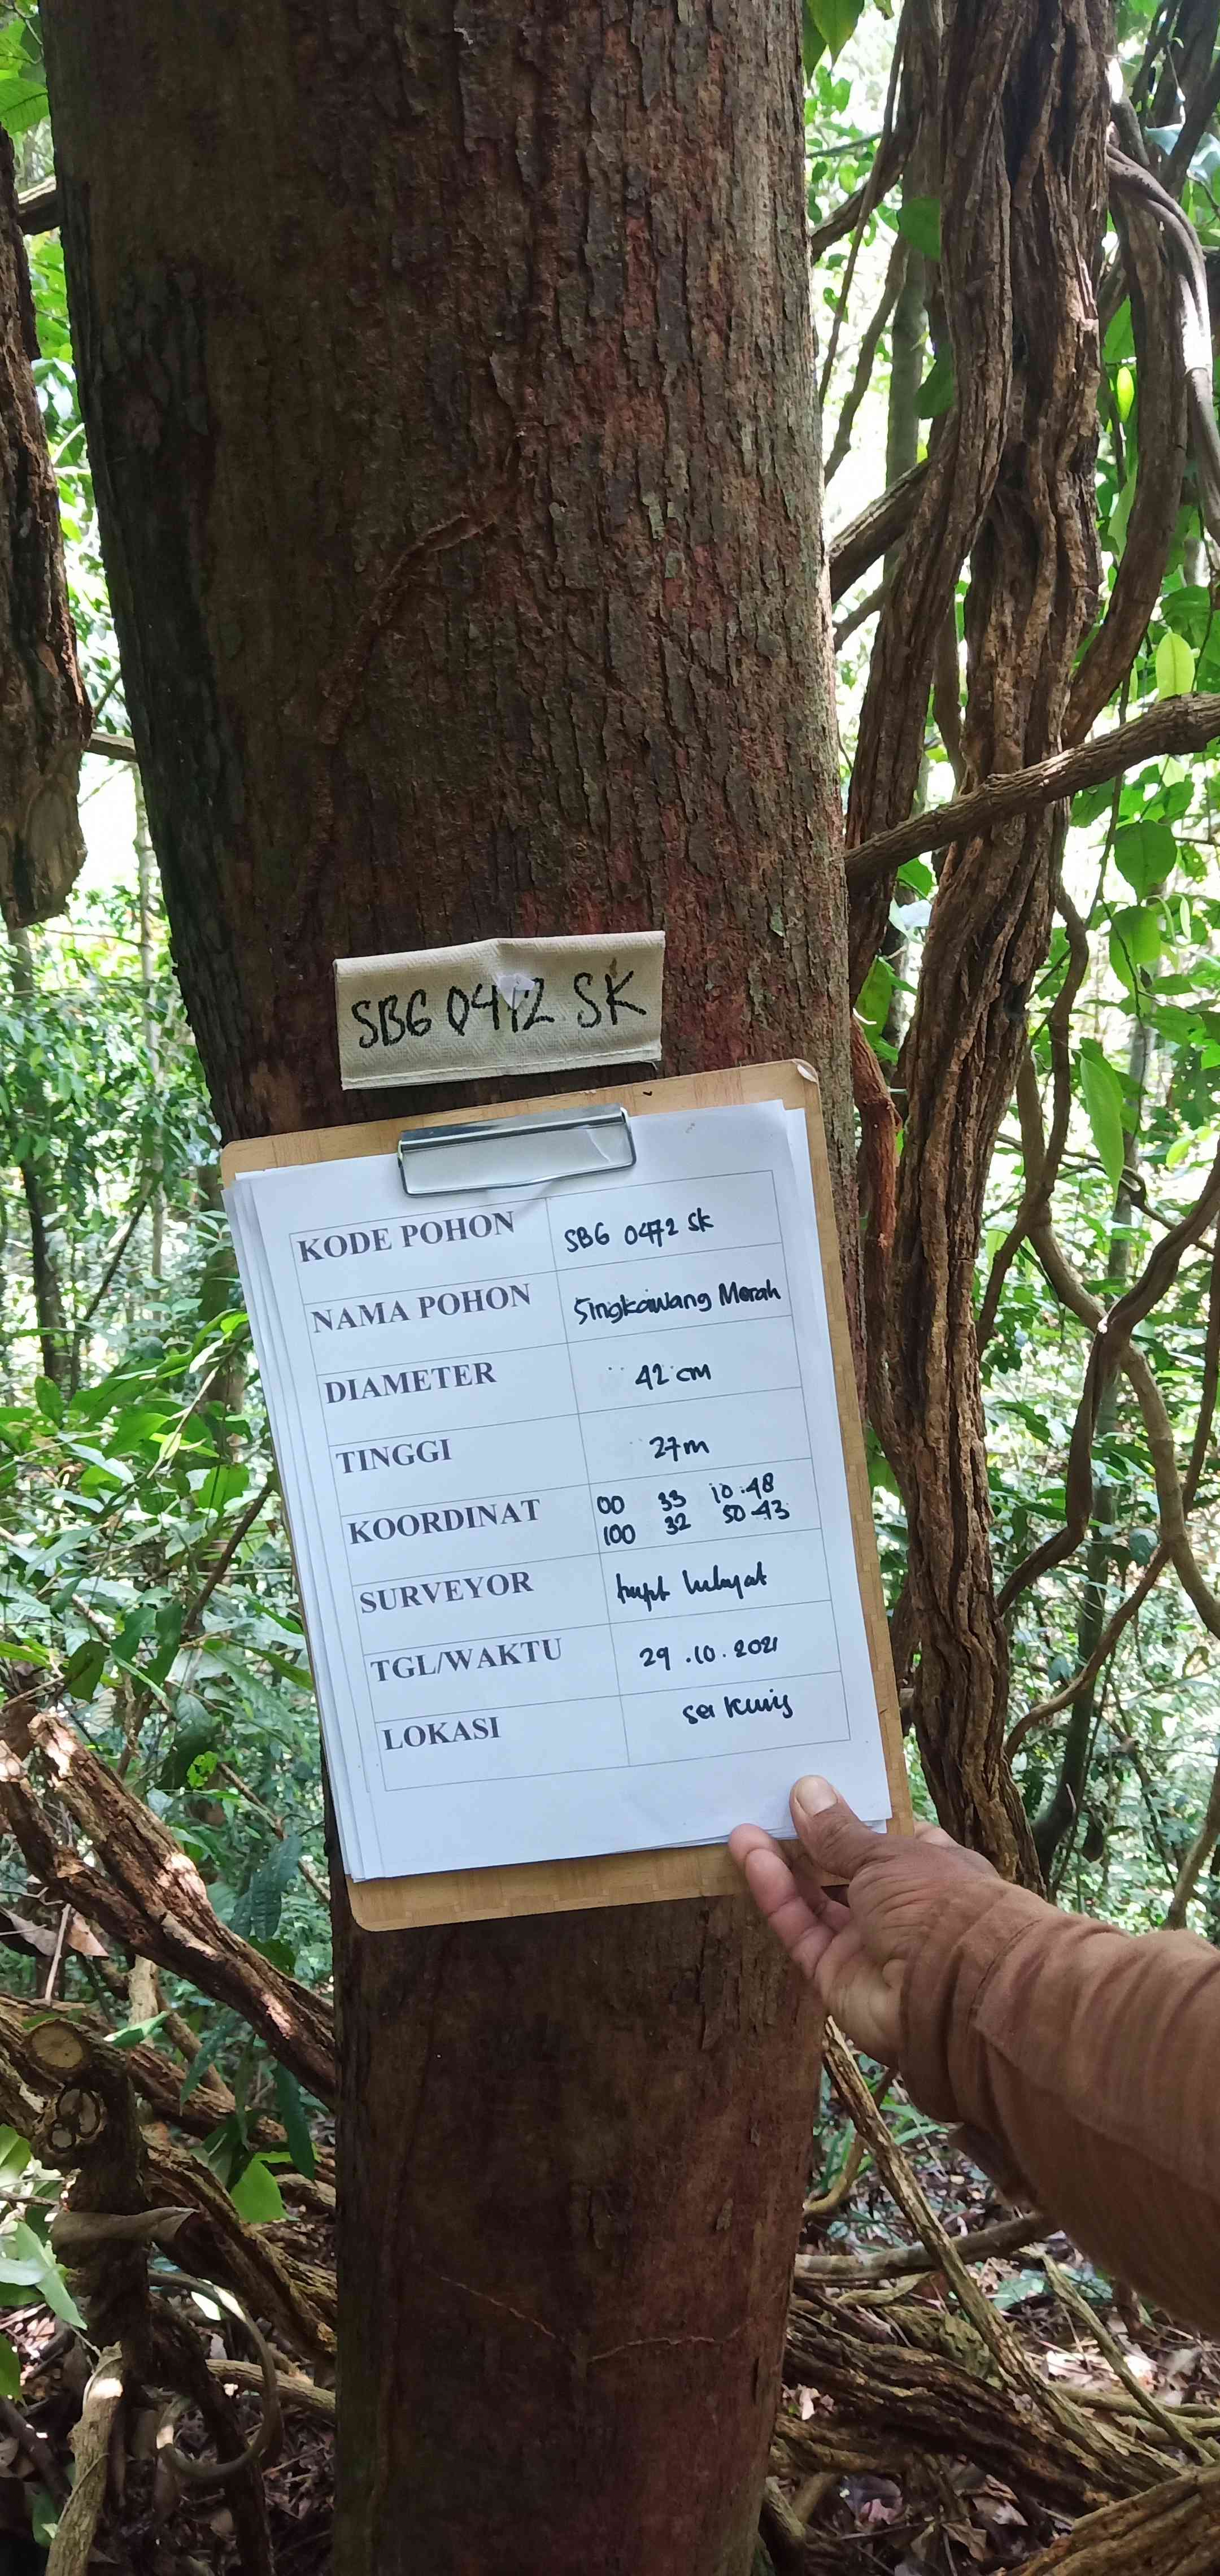 SBG 0472 SK
KODE POHON SBG 0472 SK
NAMA POHON Singkawang Merah
DIAMETER 42 cm
TINGGI 27 m
KOORDINAT 00 33 10.48
100 32 50.43
SURVEYOR
TGL/WAKTU 29.10.2021
LOKASI Sei